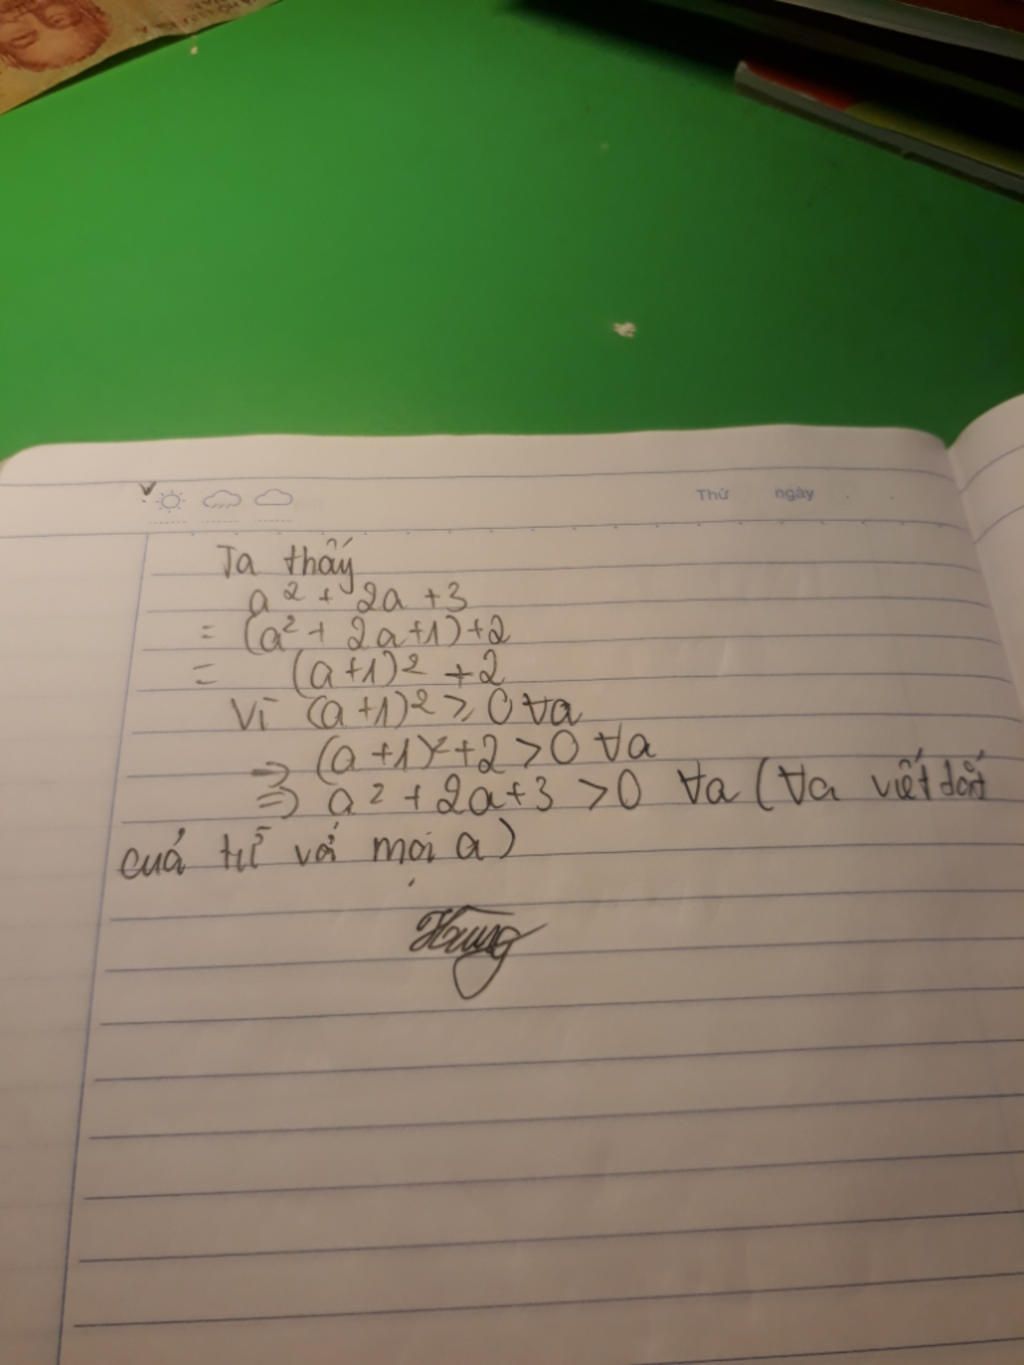 Thứ ngày
Ta thấy
a² + 2a + 3
= (a² + 2a+1)+2
= (a+1)² + 2
Vì (a+1)² ≥ 0 ∀a
=> (a+1)²+2 > 0 ∀a
=> a² + 2a+3 > 0 ∀a (∀a viết tắt
cuả từ với mọi a)
Hùng